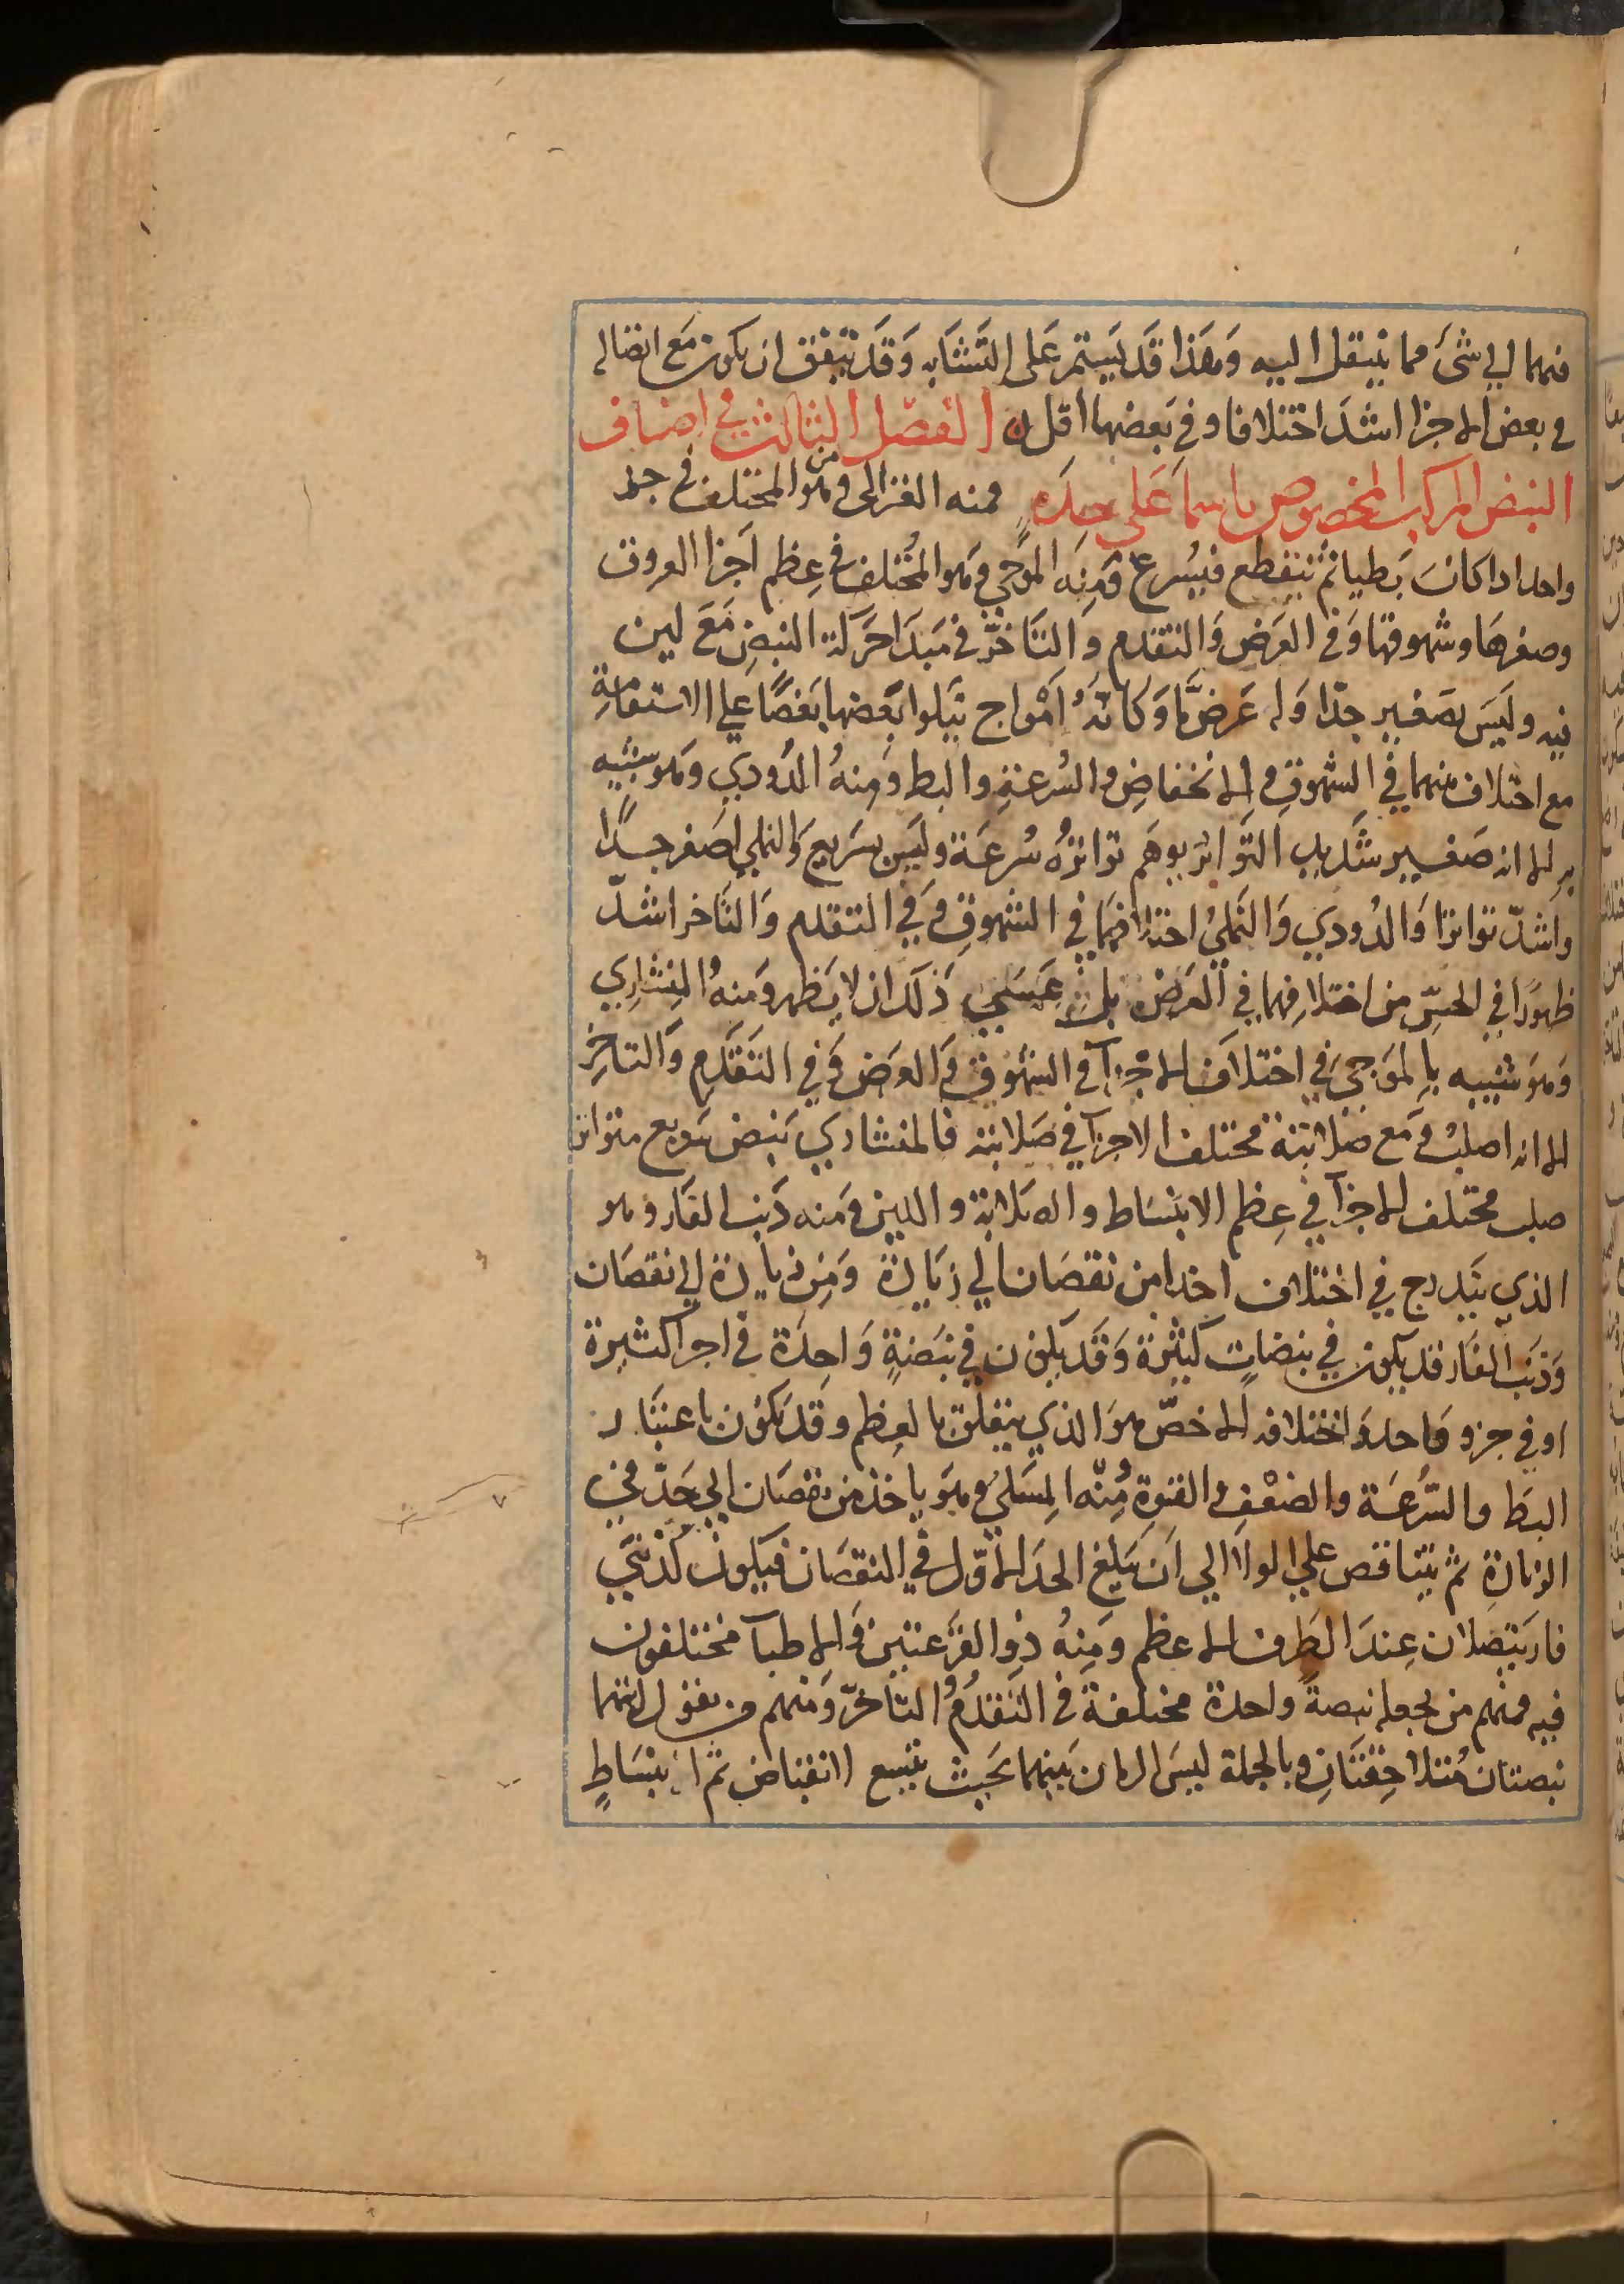 فيهما الي شئ مما ينتقل اليه وَهَذا قَد يَستمر عَلى التَشَابه وَقَد يَتفق ان يكون مَع اتصاله
في بعض الاجزا اشدَ اختلافا وفي بَعضها اقل ه الفصّل الثالث في اصناف
النبض المركب المخصوص باسما عَلى حِدَهٍ فمنه الغزالى وهو المختلف في جزء
واحد اذا كانَ بَطيا ثمُ ينقطع فيسُرع وَمِنه الموَجي وَهو المُختلف في عِظم اجزا العروق
وصغرهَا وشهوقها وَفي العَرض وَالتقدم وَالتَاخّر في مَبدَا حَركة النبض مَعَ لين
فيه وليَسَ بصَغير جدّا وَله عَرضٌ مَا وَكَانّهُ اَمْوَاج يَتَلوا بَعضها بَعضًا علي الاستقامَةِ
مع اختلاف بينهما في الشهوق والانخفاضِ والسُرعةِ والبط وَمِنهُ الدُودي وَهو شبيه
به الا انه صَغير شَديد التَواتر يوهَم تواترُه سُرعَة وليسَ بسَريع وَالنملي اصَغر جدًا
واشدّ تواترا وَالدُودي وَالنَملي اختلافهما في الشهوق وَفي التقدم وَالتَاخر اشدّ
ظهوَرا في الحسِّ من اختلافِهما في العَرض بل عَسَى ذَلكَ ان لا يَظهر وَمنهُ المِنشاري
وَهوَ شبيه بالمَوَجي في اختلاف الاجزآ في الشهَوق وَالعَرض وَفي التقَدّم وَالتاخِر
الا انه اصلبُ وَمَع صَلابته مختلف الاجزآ في صَلابته فالمنشاري نَبض سَريع متواتر
صلب مختلف الاجزآ في عِظم الانبسَاط والصَلابة واللين وَمنه ذَنب الفَار وهو
الذي يَتدرج في اختلاف اخذا من نقصَان الي زيَادة وَمِن زيادة الي نقصَان
وَذنَب الفَار قد يكون في نبضاتٍ كثيرة وَقَد يكون في نبَضةٍ وَاحِدَة في اجزآ كثيرة
او في جزو وَاحد وَاختلافه الاخصّ هوَ الذي يتعلق بالعِظم وقد يَكوُن باعتبَار
البَط والسّرُعَة والضعْفِ والقوةِ وُمنّه المِسَلي وَهوَ ياخذ من نقصَان الي حَدّ في
الزيادةِ ثم يتَناقص علي الولا الي اَن يَبلغ الحَد الاوّل في النقصَان فيَكون كذنبَي
فار يَتصَلان عِندَ الطَرف الاعظم وَمِنهُ ذو القرَعتين وَالاطبآ مختلفون
فيه فمنهم من يجعله نبضةً واحدة مختلفة في التَقدمُ وُالتاخرّ وَمنهم من يقول انهما
نبضتان مُتلاحِقتَانِ وبالجملة ليسَ الزمان بَينهما بحَيث يتسع لانقباض ثمّ انبسَاطٍ